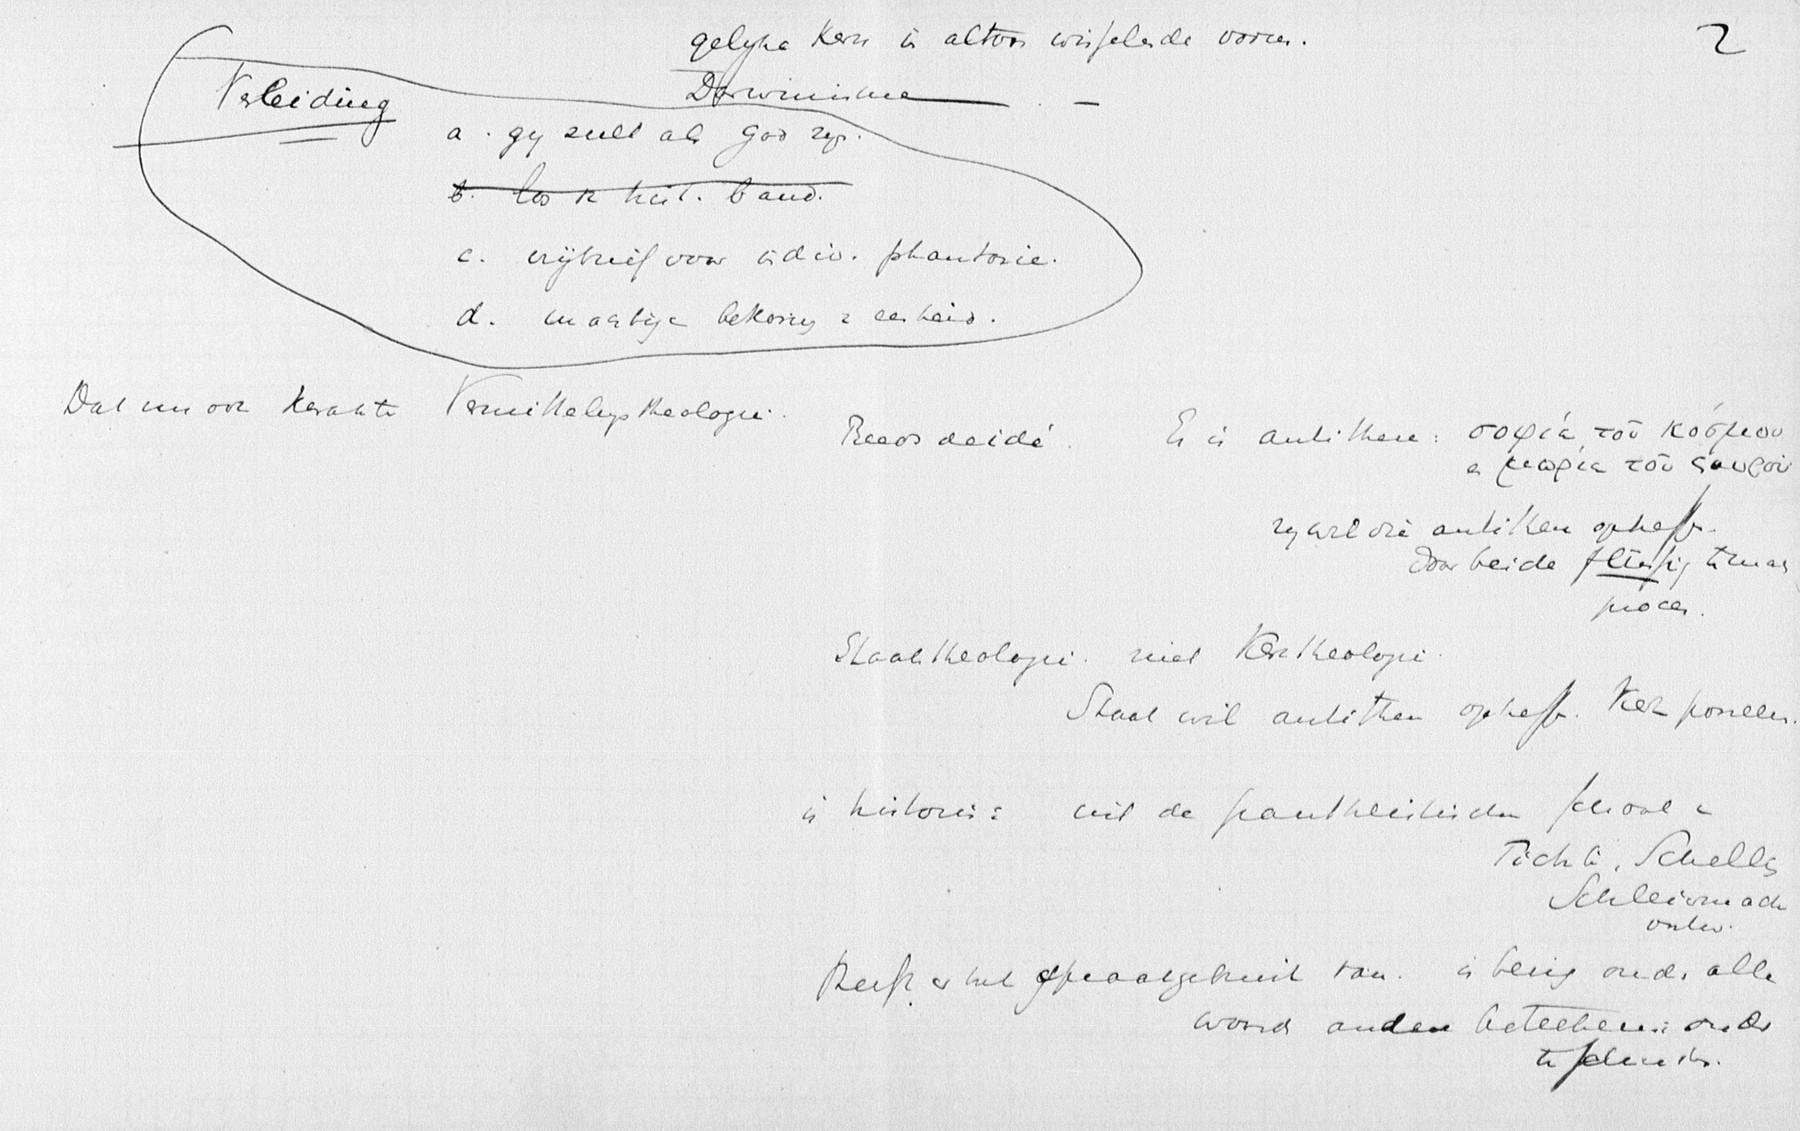 gelyke Kern in altoos wisselende vorm.
2
Darwinisme —
Verleiding
a. gy zult als God zyn.
b. los v. heil. band.
c. vrijbrief voor indiv. phantasie.
d. machtige bekoring v eenheid.
Dat nu ook Vermittelungstheologie.
Reeds deidé. Er is antithese: σοφία τοῦ κόσμου
en μωρία τοῦ ςαυροῦ
zy wil die antithese opheff.
door beide flüssig te maken
proces.
Staatstheologie. niet Kerktheologie.
Staat wil antithese opheff. Kerk poneren.
in historie: uit de pantheistische school v
Fichte, Schelling
Schleiermach
ontw.
het spraakgebruik aan. is bezig onder alle
woord andere beteekenis onder
te schuiv.